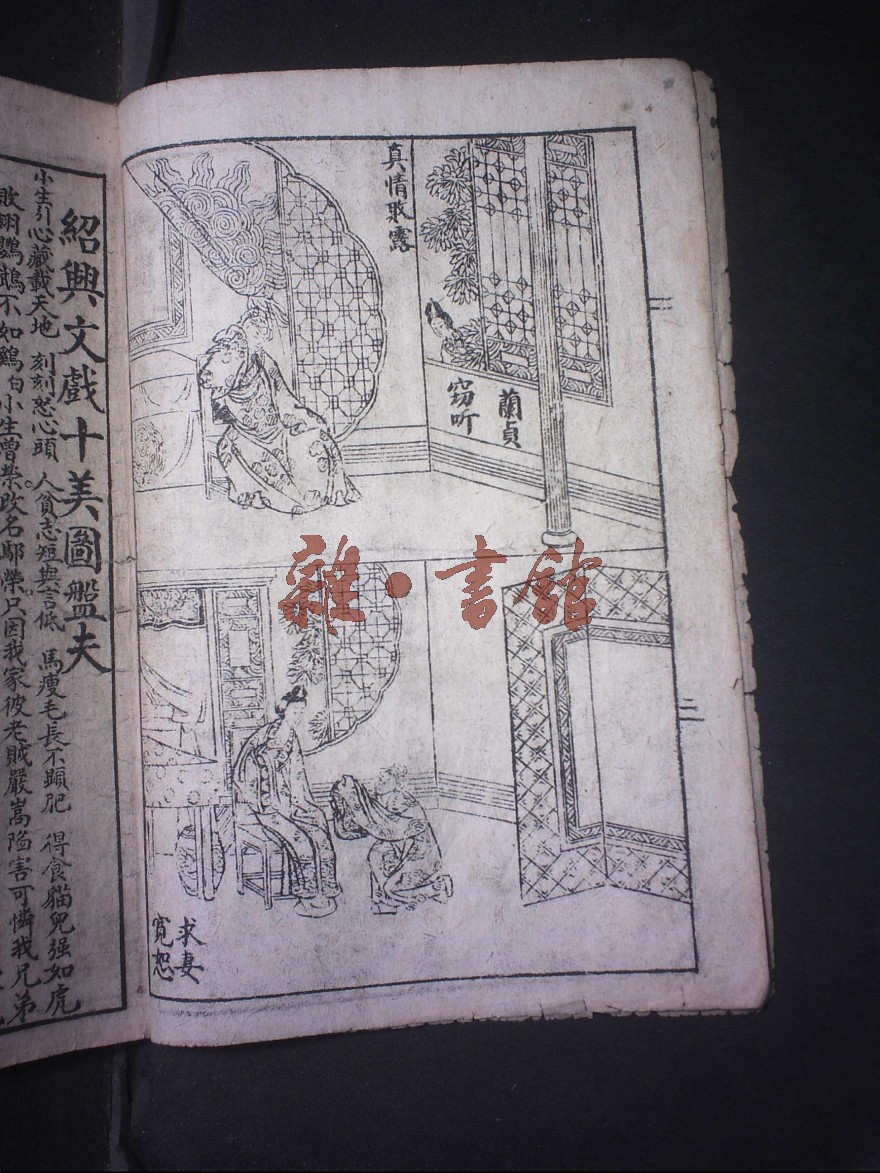 真情敢露
蘭貞
窃听
雜·書館
求妻
寛恕
二
紹興文戲十美圖盤夫
小生引心藏載天地 刻刻恕心頭 人貧志短與言低 馬瘦毛長不顕肥 得食貓兒强如虎
敗翎鸚鵡不如鷄白小生曾榮改名鄢榮只因我家彼老賊嚴嵩陷害可憐我兄弟